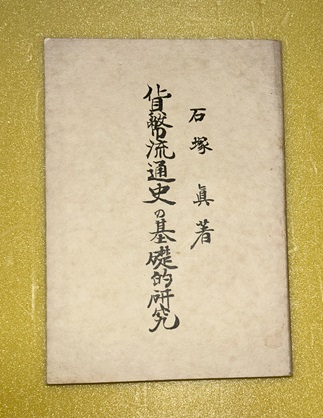 石塚眞著
貨幣流通史の基礎的研究